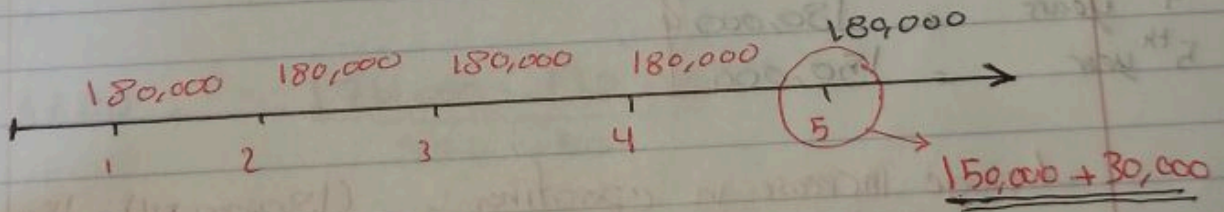 180,000
180,000 180,000 180,000 180,000
1 2 3 4 5
150,000 + 30,000